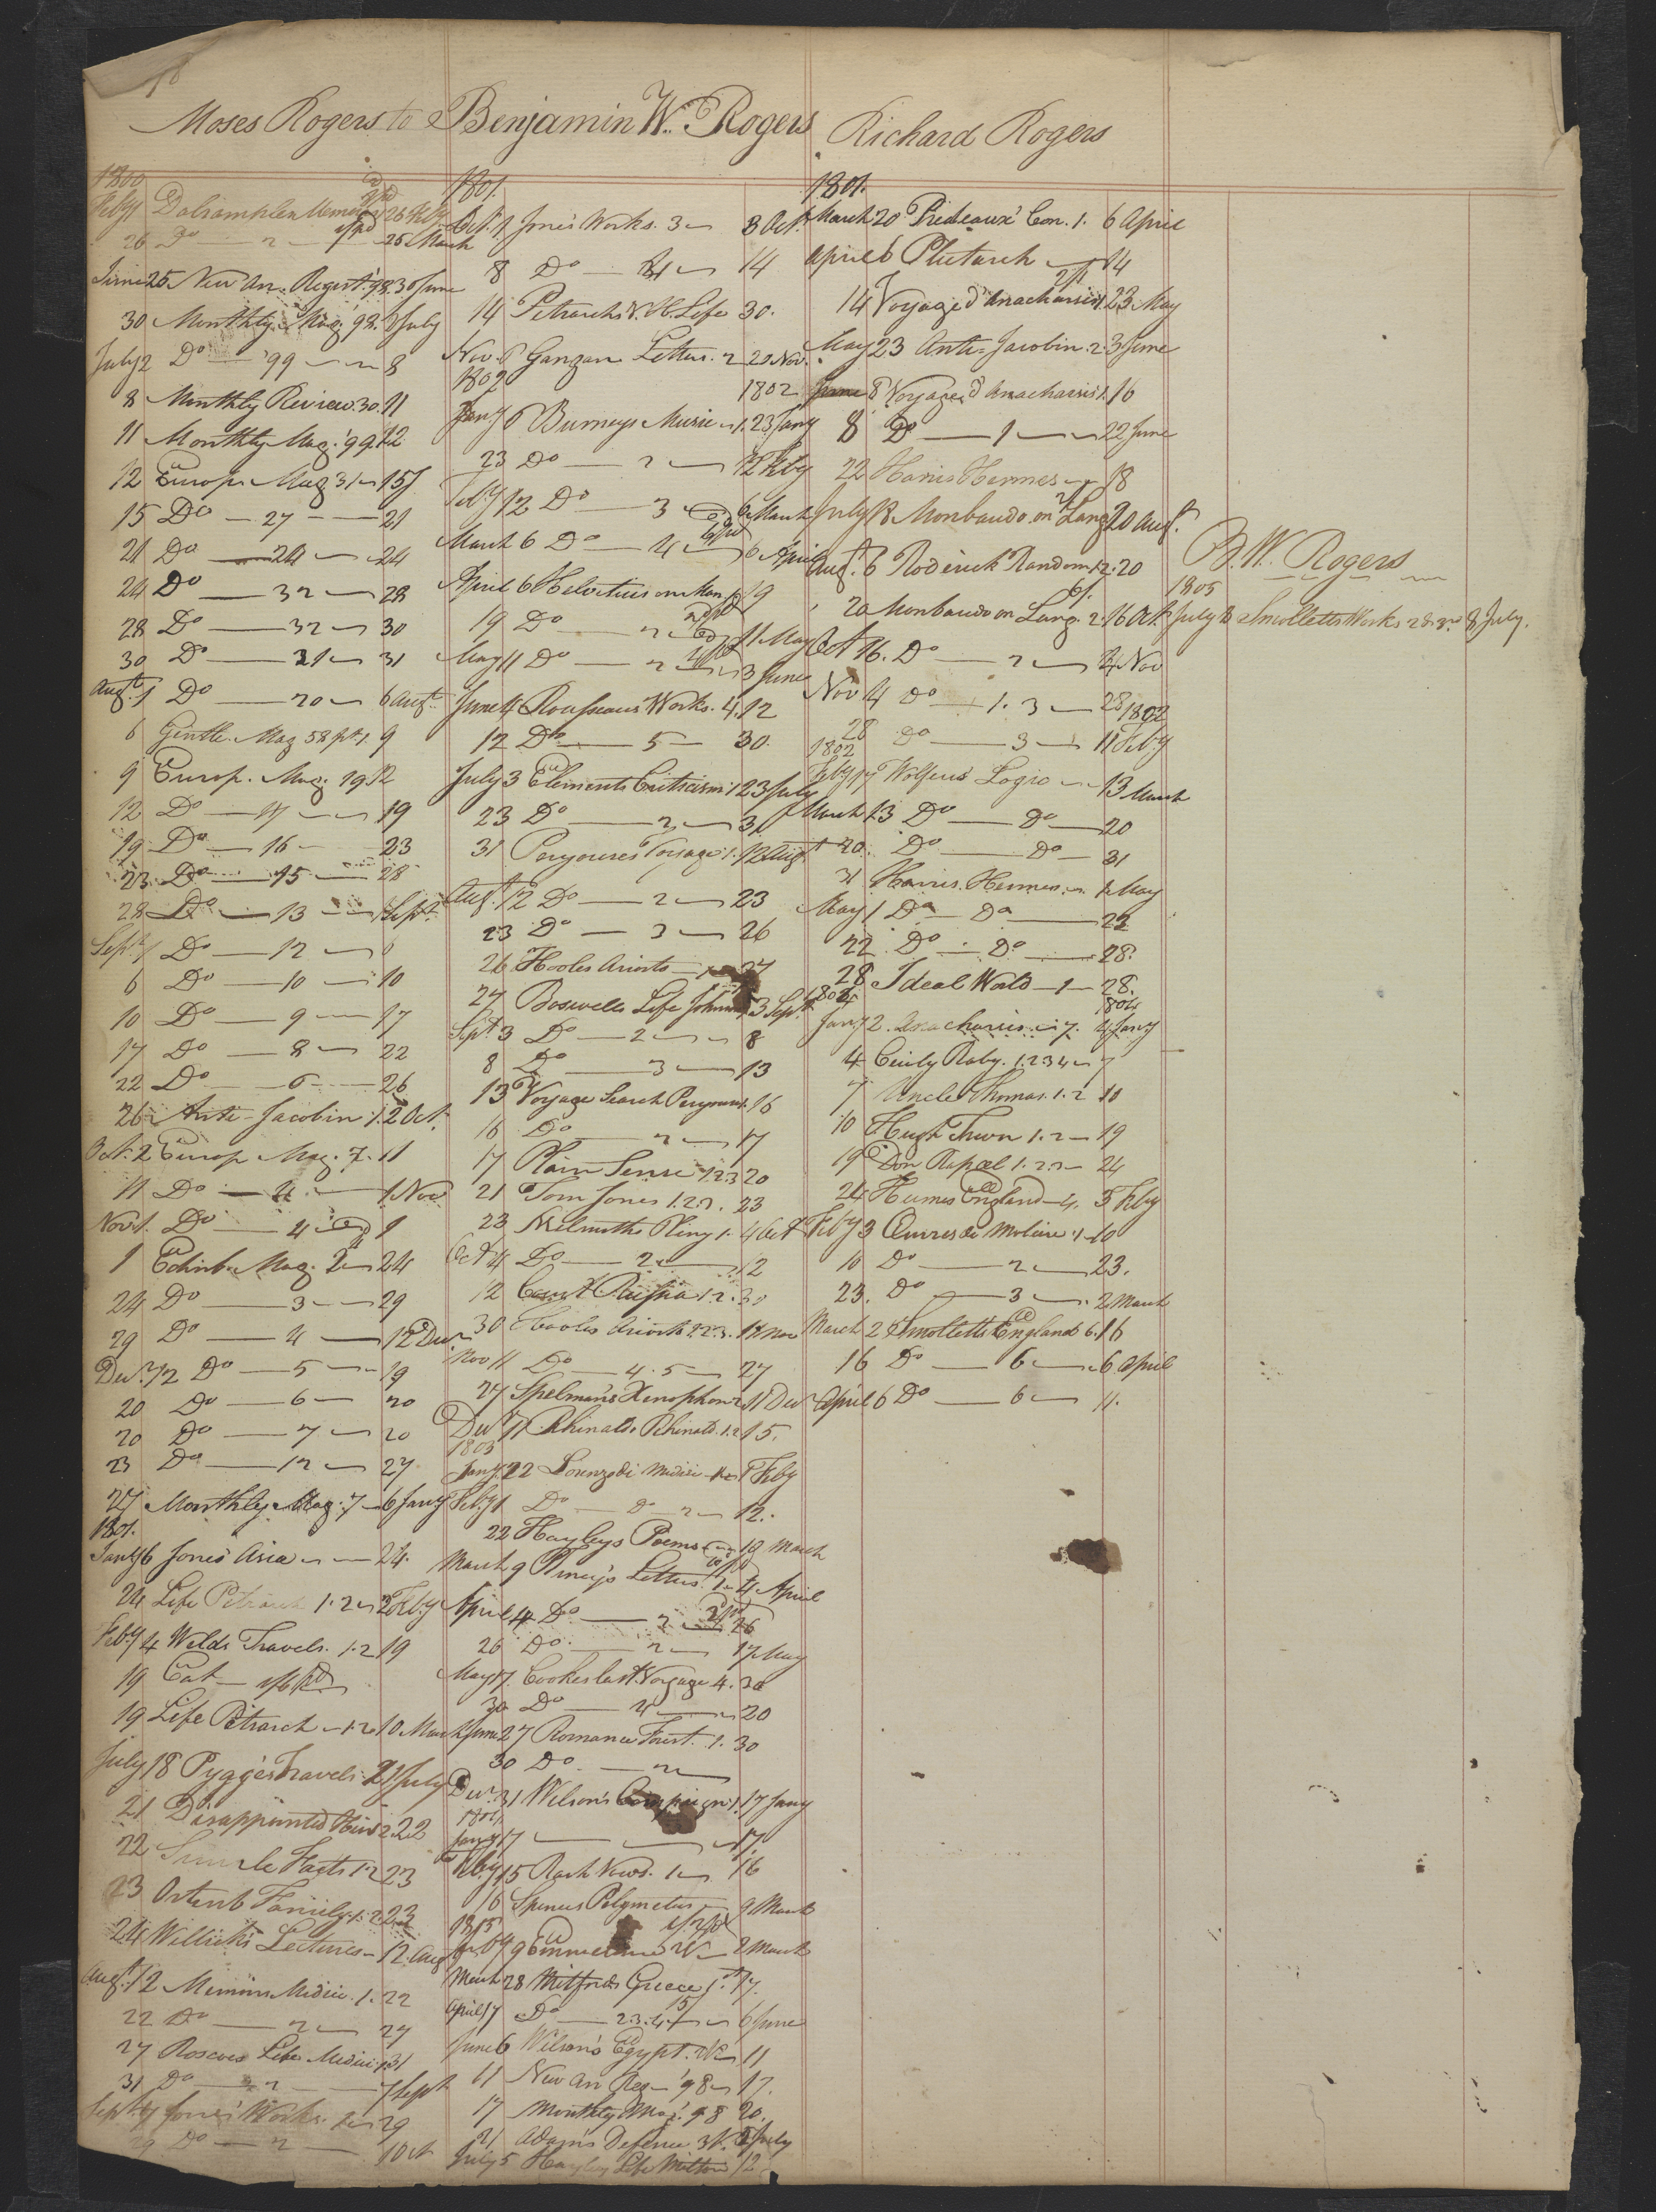 Moses Rogers to Benjamin W. Rogers
1800
Feby 1 Dalrymples Memoirs 26 Feby
26 Do — 2 — 25 March
June 25 New An. Regist. 98. 30 June
30 Monthly Mag. 92. 2 July
July 2 Do — '99 — 8
8 Monthly Review 30. 11
11 Monthly Mag. '99. 12
12 Europ. Mag 31 — 15 J
15 Do — 27 — 21
21 Do — 24 — 24
24 Do — 32 — 28
28 Do — 32 — 30
30 Do — 21 — 31
Augt. 1 Do — 20 — 6 Augt
6 Gentle. Mag 58 pt. 1. 9
9 Europ. Mag. 19 12
12 Do — 17 — 19
19 Do — 16 — 23
23 Do — 15 — 28
28 Do — 13 — 1 Sept.
Sept. 1 Do — 12 — 6
6 Do — 10 — 10
10 Do — 9 — 17
17 Do — 8 — 22
22 Do — 6 — 26
26 Anti-Jacobin 1. 2 Oct.
Oct. 2 Europ Mag. 7. 11
11 Do — 4 — 1 Nov
Nov. 1. Do — 4 — 1
1 Edinb. Mag. 2 — 24
24 Do — 3 — 29
29 Do — 4 — 12 Decr
Decr. 12 Do — 5 — 19
20 Do — 6 — 20
20 Do — 7 — 20
23 Do — 12 — 27
27 Monthly Mag. 7 — 6 Jany
1801.
Jany 6 Jones' Asia — 24.
24 Life Petrarch 1. 2 — 2 Feby
Feby 4 Welds Travels. 1. 2 19
19 Cat — 1/6 pd
19 Life Petrarch — 1. 2 10 March
July 18 Pygge's Travels. 21 July
21 Disappointed Heir 2. 22
22 Hasts 1. 2 23
23 Ostenb Family. 1. 2 23
24 Willich's Lectures — 12 Aug
Augt. 12 Memoirs Medici. 1. 22
22 Do — 2 — 27
27 Roscoes Life Medici 1. 31
31 Do — 2 — 7 Sept
Sept. 7 Jones' Works. 1 — 29
29 Do — 2 — 1 Oct
1801.
Oct. 1 Jones' Works. 3 — 8 Oct.
8 Do — 4 — 14
14 Petrarch's Life 30.
Nov 6 Ganganelli Letters. 2 20 Nov.
1802 1802
Jany 6 Burneys Music — 1. 23 Jany
23 Do — 2 — 12 Feby
Feby 12 Do — 3 — 6 March
March 6 Do — 4 — 6 April
April 6 Helvetius on Man 1. 19
19 Do — 2 — 11 May
May 11 Do — 2 — 3 June
June 4 Rousseaus Works. 4. 12
12 Do — 5 — 30.
July 3 Elements Criticism. 1 23 July
23 Do — 2 — 31
31 Perouses Voyage. 1. 12 Augt
Augt. 12 Do — 2 — 23
23 Do — 3 — 26
26 Hooles Ariosto — 1 — 27
27 Boswells Life Johnson 1. 3 Sept.
Sept 3 Do — 2 — 8
8 Do — 3 — 13
13 Voyage Search Perouse 1. 16
16 Do — 2 — 17
17 Plain Sense 1. 2 3 20
21 Tom Jones 1. 2. 3. 23
23 Melmoths Pliny 1. 4 Oct
Oct 4 Do — 2 — 12
12 Court Russia 1. 2. 30
30 Hooles Ariosto 1. 2 3. 11 Nov
Nov 11 Do — 4. 5 — 27
27 Spelman's Xenophon 2. 11 Decr
Decr 11 Rhinaldo Rhinald. 1. 2 15.
1803
Jany 22 Lorenzo di Medici 1 — 1 Feby
Feby 1 Do — Do 2 — 12.
22 Hayleys Poems — 19 March
March 9 Pliney's Letters. 1 — 4 April
April 4 Do — 2 — 26
26 Do — 2 — 17 May
May 17. Cookes last Voyage 4. 30
30 Do — 4 — 20
June 27 Romance Forest. 1. 30
30 Do — 2
Decr 31 Wilson's Campaign 1. 17 Jany
1804
Jany 17 — — 17.
Feby 15 Rash Vows. 1 — 16
16 Spences Polymetis — 9 March
1805
Feby 9 Emmeline — 2 March
March 28 Mitfords Greece 1. 17.
April 17 Do — 2. 3. 4. 5 — 6 June
June 6 Wilson's Egypt. — 11
11 New An Reg — '98 — 17.
17 Monthly Mag. 98 20.
21 Adam's Defence 3 V. 5 July
July 5 Hayley Life Milton 12
Richard Rogers
1801.
March 20 Prideaux' Con. 1. 6 April
April 6 Plutarch — 14
14 Voyage d'Anacharsis 1. 23 May
May 23 Anti-Jacobin. 2. 3 June
June 8 Voyage d'Anacharsis 1. 16
8 Do — 1 — 22 June
22 Harris Hermes — 18
July 18 Monboddo on Lang 20 Augt.
Augt. 6 Roderick Random 1. 2. 20
20 Monboddo on Lang. 2. 16 Oct.
Oct 16. Do — 2 — 4 Nov
Nov 4 Do — 1. 3 — 28
28 Do — 3 — 11 Feby 1802
1802
Feby 17 Wolfius' Logic — 13 March
March 13 Do — Do — 20
20. Do — Do — 31
31 Harris. Hermes. — 1 May
May 1 Do — Do — 22
22 Do — Do — 28.
28 Ideal World — 1 — 28.
1804 1804
Jany 2. Anacharsis — 7. 4 Jany
4 Cicily Raby. 1. 2 3 4 — 7
7 Uncle Thomas. 1. 2 10
10 Hugh Trevor 1. 2 — 19
19 Don Rapael 1. 2. 3 — 24
24 Humes England — 4. 3 Feby
Feby 3 Œuvres de Moliere. 1 — 10
10 Do — 2 — 23.
23. Do — 3 — 2 March
March 2 Smolletts England 6. 16
16 Do — 6 — 6 April
April 6 Do — 6 — 11.
B. W. Rogers
1805
July 3 Smolletts Works 2 & 3rd 8 July.